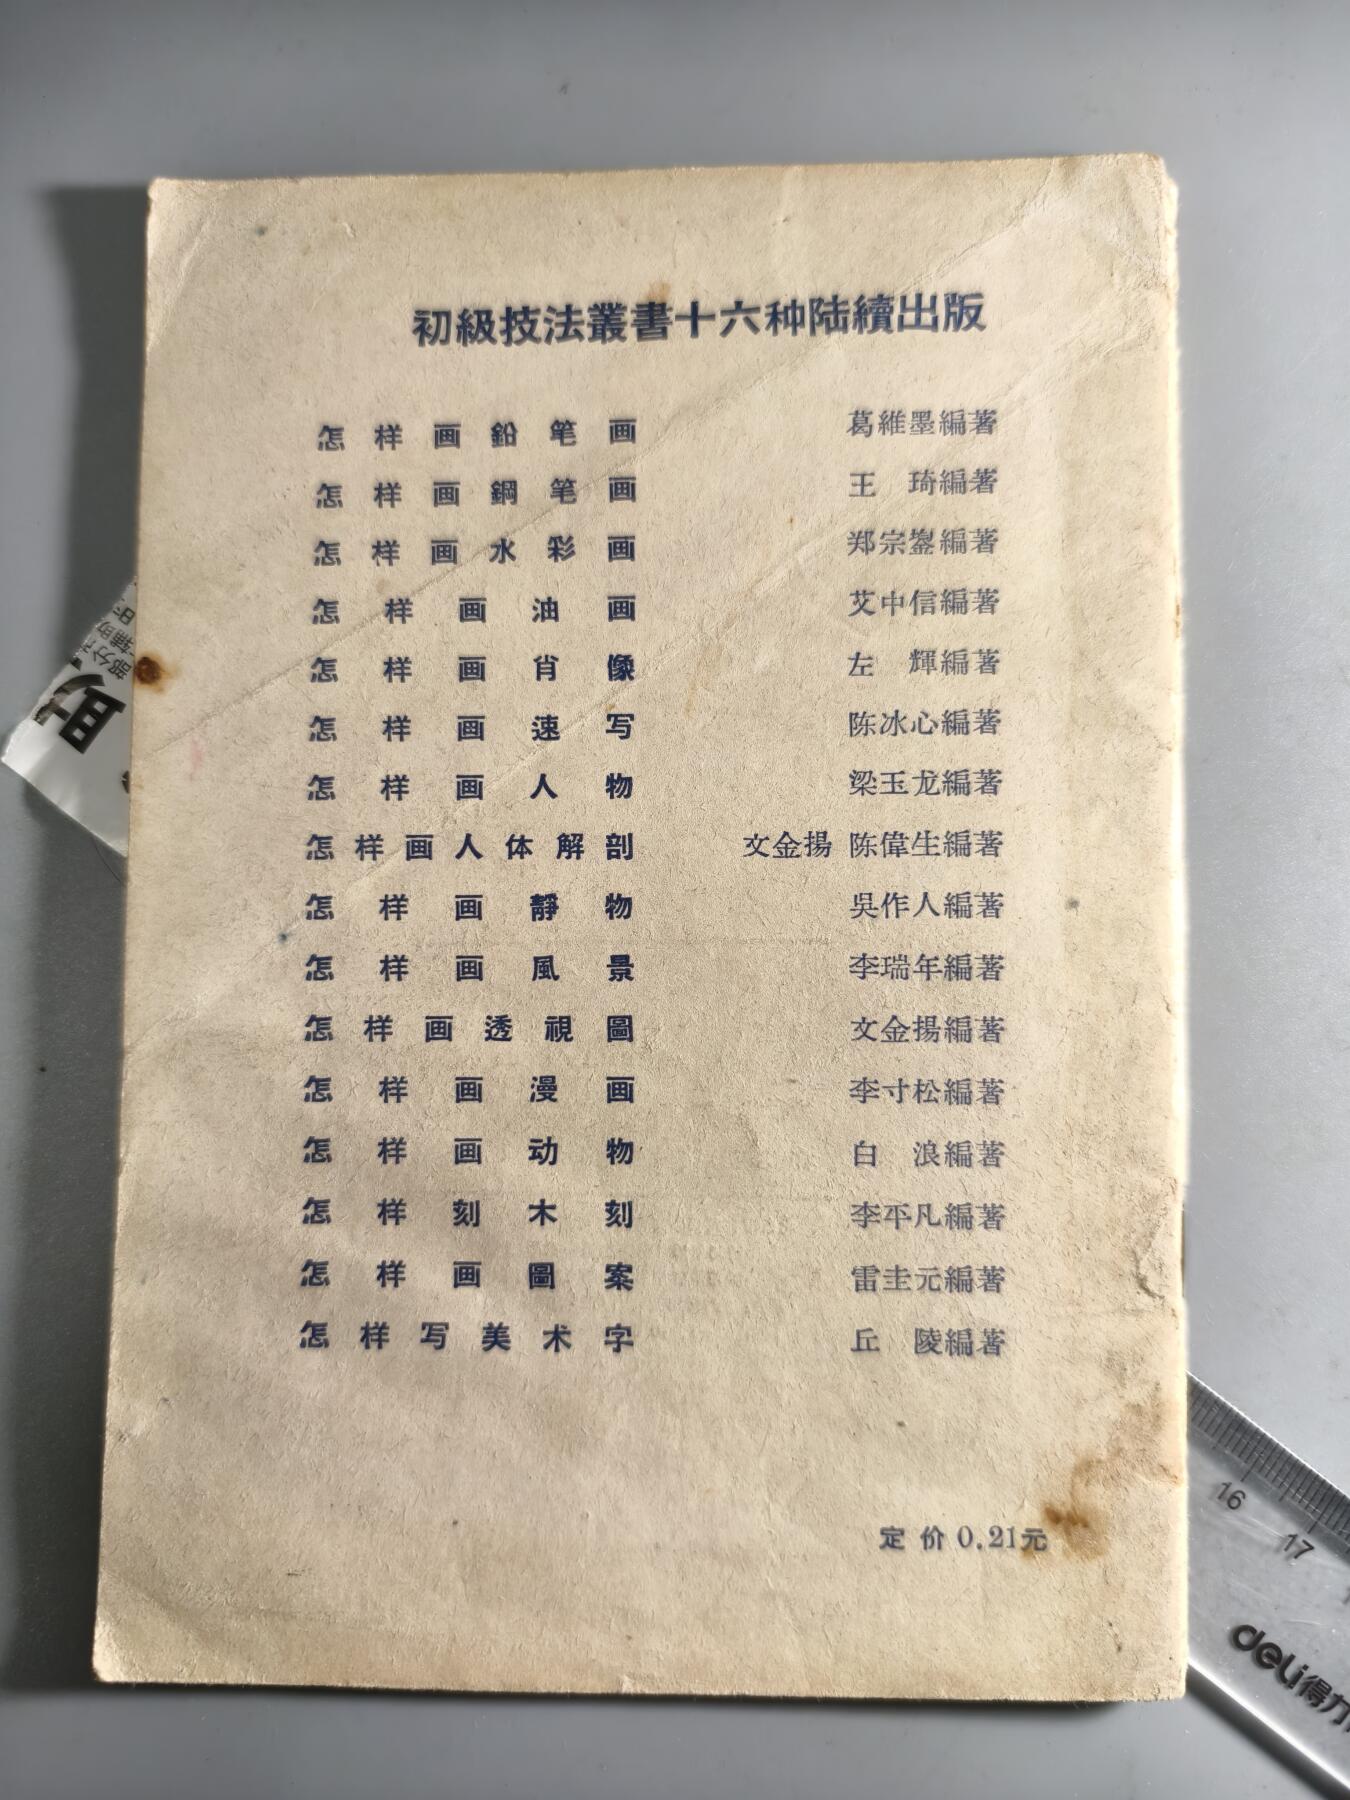 初級技法叢書十六种陆續出版
怎样画鉛笔画 葛維墨編著
怎样画鋼笔画 王琦編著
怎样画水彩画 郑宗鋆編著
怎样画油画 艾中信編著
怎样画肖像 左輝編著
怎样画速写 陈冰心編著
怎样画人物 梁玉龙編著
怎样画人体解剖 文金揚 陈偉生編著
怎样画靜物 吳作人編著
怎样画風景 李瑞年編著
怎样画透視圖 文金揚編著
怎样画漫画 李寸松編著
怎样画动物 白浪編著
怎样刻木刻 李平凡編著
怎样画圖案 雷圭元編著
怎样写美术字 丘陵編著
定价 0.21元
16
17
deli得力
部分
辅助